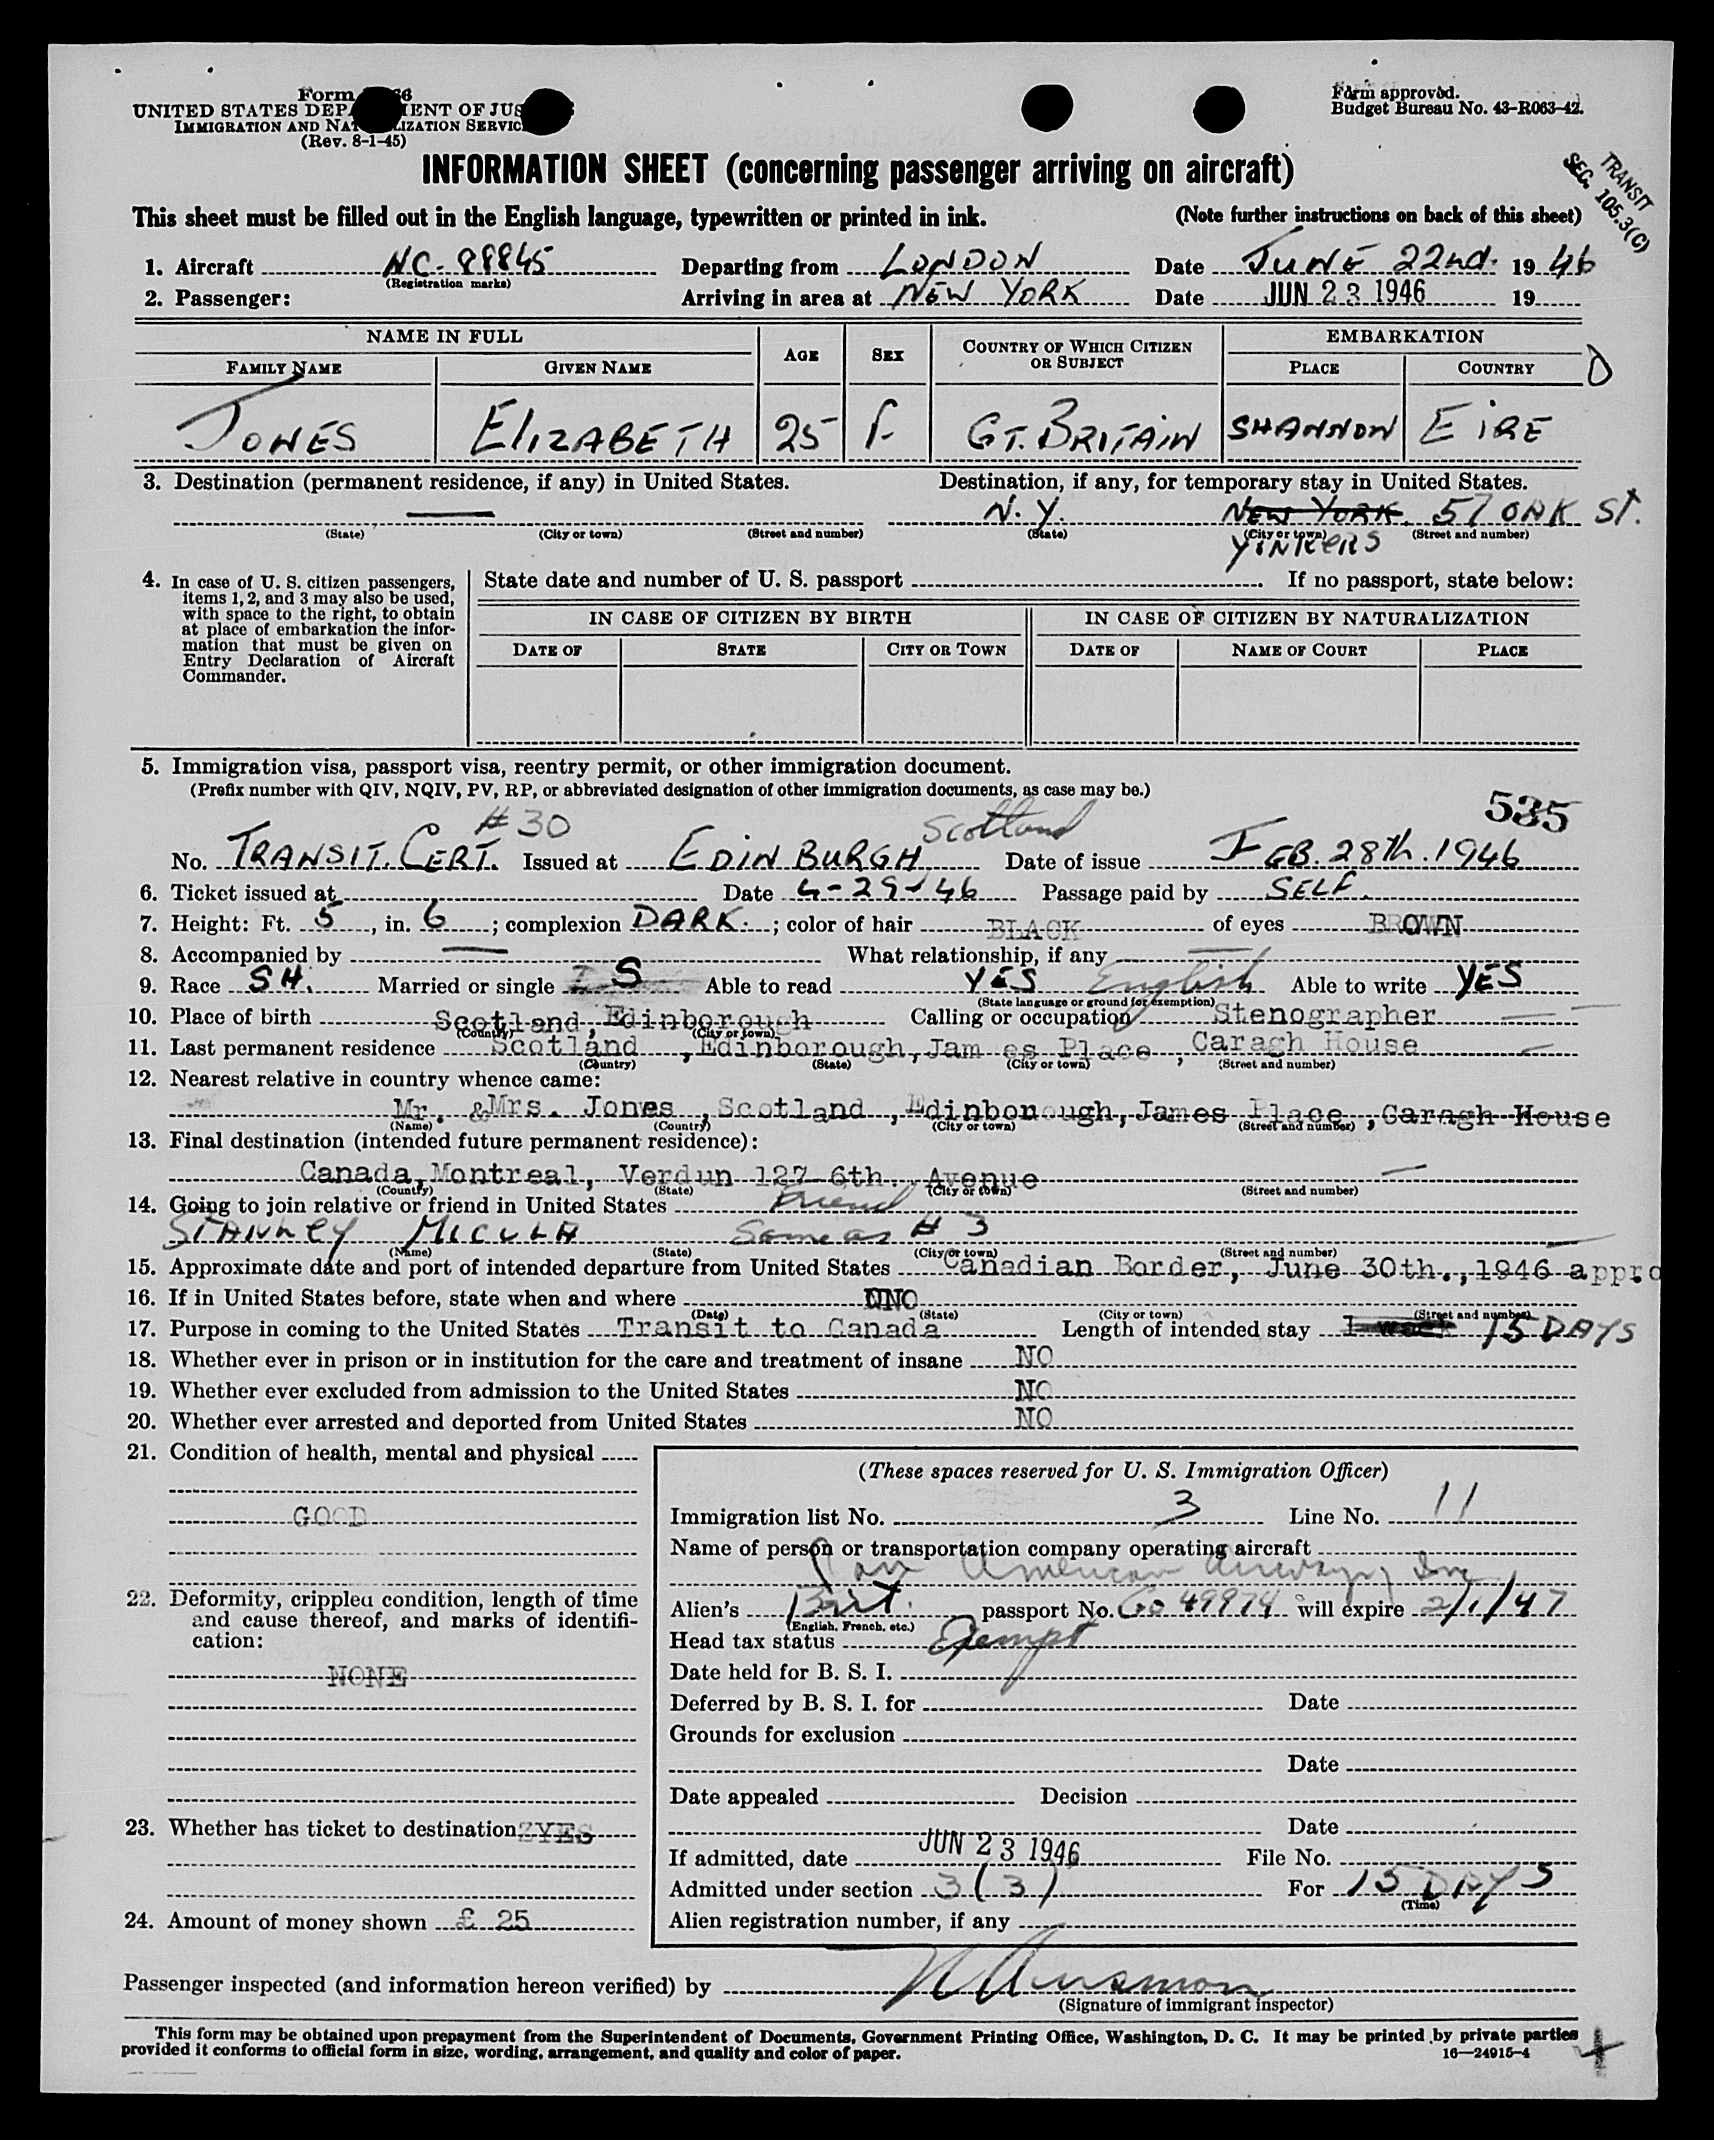 Form 66
UNITED STATES DEP ENT OF JUS
IMMIGRATION AND NAT LIZATION SERVIC
(Rev. 8-1-45)
Form approved.
Budget Bureau No. 43-R063-42.
TRANSIT
SEC. 105.3(C)
INFORMATION SHEET (concerning passenger arriving on aircraft)
This sheet must be filled out in the English language, typewritten or printed in ink. (Note further instructions on back of this sheet)
1. Aircraft NC-88845 Departing from LONDON Date JUNE 22nd. 19 46
(Registration marks)
2. Passenger: Arriving in area at NEW YORK Date JUN 23 1946 19
NAME IN FULL AGE SEX COUNTRY OF WHICH CITIZEN OR SUBJECT EMBARKATION
FAMILY NAME GIVEN NAME PLACE COUNTRY
JONES ELIZABETH 25 F. GT. BRITAIN SHANNON EIRE
3. Destination (permanent residence, if any) in United States. Destination, if any, for temporary stay in United States.
— N.Y. NEW YORK 57 OAK ST.
(State) (City or town) (Street and number) (State) (City or town) (Street and number)
YINKERS
4. In case of U. S. citizen passengers, items 1, 2, and 3 may also be used, with space to the right, to obtain at place of embarkation the information that must be given on Entry Declaration of Aircraft Commander.
State date and number of U. S. passport If no passport, state below:
IN CASE OF CITIZEN BY BIRTH IN CASE OF CITIZEN BY NATURALIZATION
DATE OF STATE CITY OR TOWN DATE OF NAME OF COURT PLACE
5. Immigration visa, passport visa, reentry permit, or other immigration document.
(Prefix number with QIV, NQIV, PV, RP, or abbreviated designation of other immigration documents, as case may be.)
535
#30 Scotland
No. TRANSIT. CERT. Issued at EDINBURGH Date of issue FEB. 28th. 1946
6. Ticket issued at Date 4-29-46 Passage paid by SELF.
7. Height: Ft. 5, in. 6; complexion DARK.; color of hair BLACK of eyes BROWN
8. Accompanied by — What relationship, if any —
9. Race SH. Married or single S Able to read YES English Able to write YES
(State language or ground for exemption)
10. Place of birth Scotland, Edinborough Calling or occupation Stenographer
(Country) (City or town)
11. Last permanent residence Scotland, Edinborough, Jam es Place, Caragh House
(Country) (State) (City or town) (Street and number)
12. Nearest relative in country whence came:
Mr. &Mrs. Jones, Scotland, Edinborough, James Place, Caragh House
(Name) (Country) (City or town) (Street and number)
13. Final destination (intended future permanent residence):
Canada, Montreal, Verdun 127 6th. Avenue
(Country) (State) (City or town) (Street and number)
14. Going to join relative or friend in United States Friend
STANLEY MICULA Same as # 3
(Name) (State) (City or town) (Street and number)
15. Approximate date and port of intended departure from United States Canadian Border, June 30th., 1946 appro
16. If in United States before, state when and where NO
(Date) (State) (City or town) (Street and number)
17. Purpose in coming to the United States Transit to Canada Length of intended stay 1 week 15 DAYS
18. Whether ever in prison or in institution for the care and treatment of insane NO
19. Whether ever excluded from admission to the United States NO
20. Whether ever arrested and deported from United States NO
21. Condition of health, mental and physical
GOOD
22. Deformity, crippled condition, length of time and cause thereof, and marks of identification:
NONE
23. Whether has ticket to destination YES
24. Amount of money shown £ 25
(These spaces reserved for U. S. Immigration Officer)
Immigration list No. 3 Line No. 11
Name of person or transportation company operating aircraft
Pan American Airways, Inc
Alien's Brit. passport No. Co 49974 will expire 2/1/47
(English, French, etc.)
Head tax status Exempt
Date held for B. S. I.
Deferred by B. S. I. for Date
Grounds for exclusion
Date
Date appealed Decision
Date
If admitted, date JUN 23 1946 File No.
Admitted under section 3(3) For 15 DAYS
(Time)
Alien registration number, if any
Passenger inspected (and information hereon verified) by
(Signature of immigrant inspector)
This form may be obtained upon prepayment from the Superintendent of Documents, Government Printing Office, Washington, D. C. It may be printed by private parties
provided it conforms to official form in size, wording, arrangement, and quality and color of paper. 16—24915-4